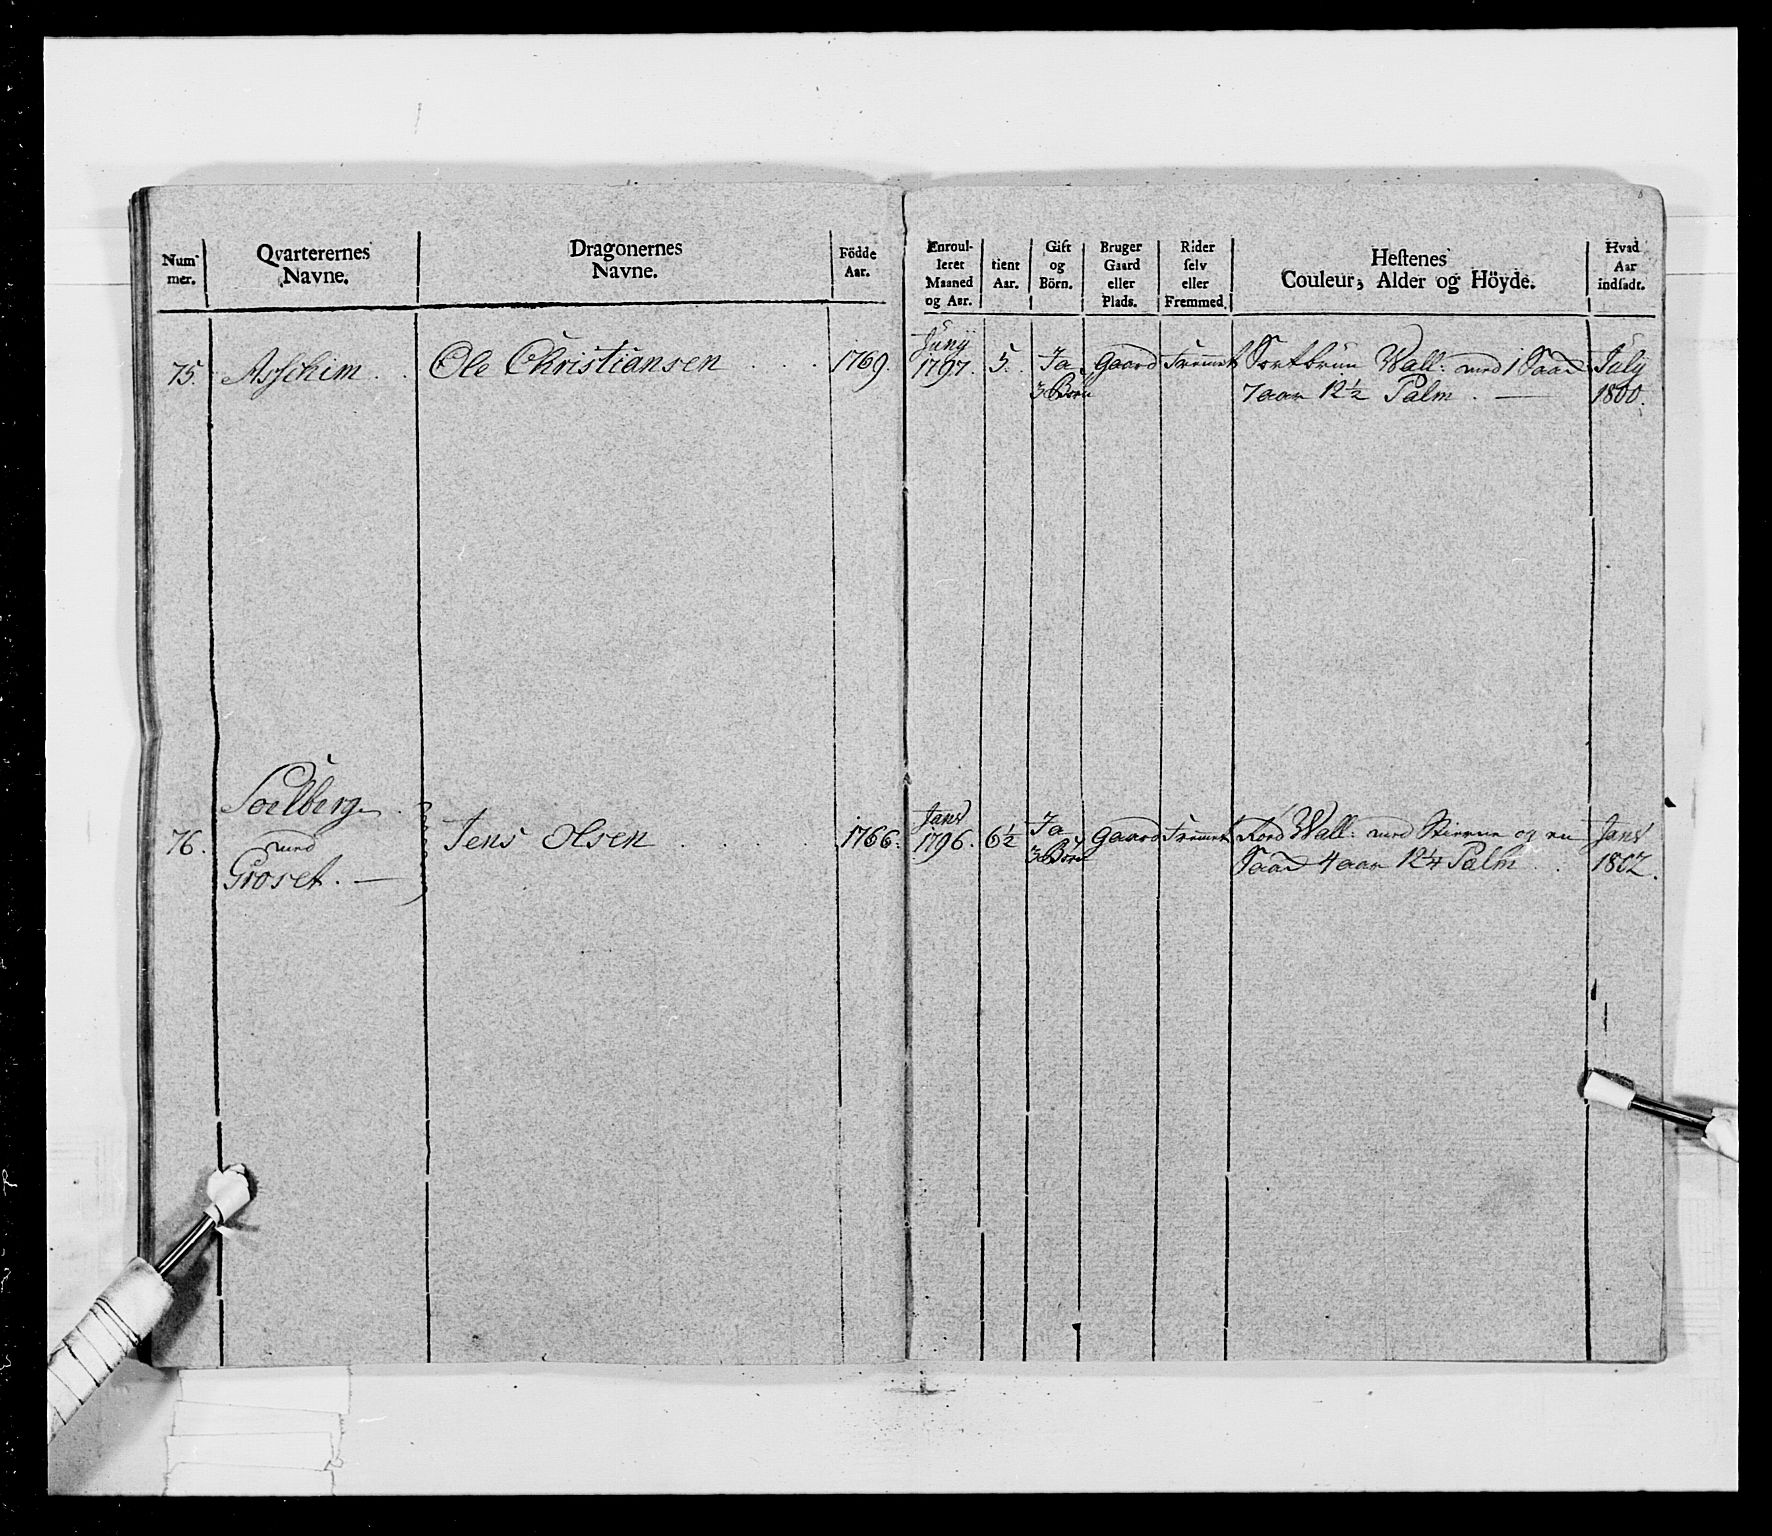 Num- mer.
Qvarterernes Navne.
Dragonernes Navne.
Födde Aar.
Enroul- leret Maaned og Aar.
tient Aar.
Gift og Börn.
Bruger Gaard eller Plads.
Rider selv eller Fremmed.
Hestenes Couleur, Alder og Höyde.
Hvad Aar indsadt.
75. Asschim . . Ole Christiansen . . . 1769. Juny 1797. 5. Ja 3 Börn Gaard Fremmet Sortbrun Wall: med 1 Saad July
7 aar 12½ Palm . — 1800.
Soelberg
76. med Jens Olsen . . . . 1766. Janr 1796. 6½ Ja 3 Börn Gaard Fremmet Röd Wall: med Stierne og en Janr
Groset. — Saad 4 aar 12¼ Palm . . 1802.